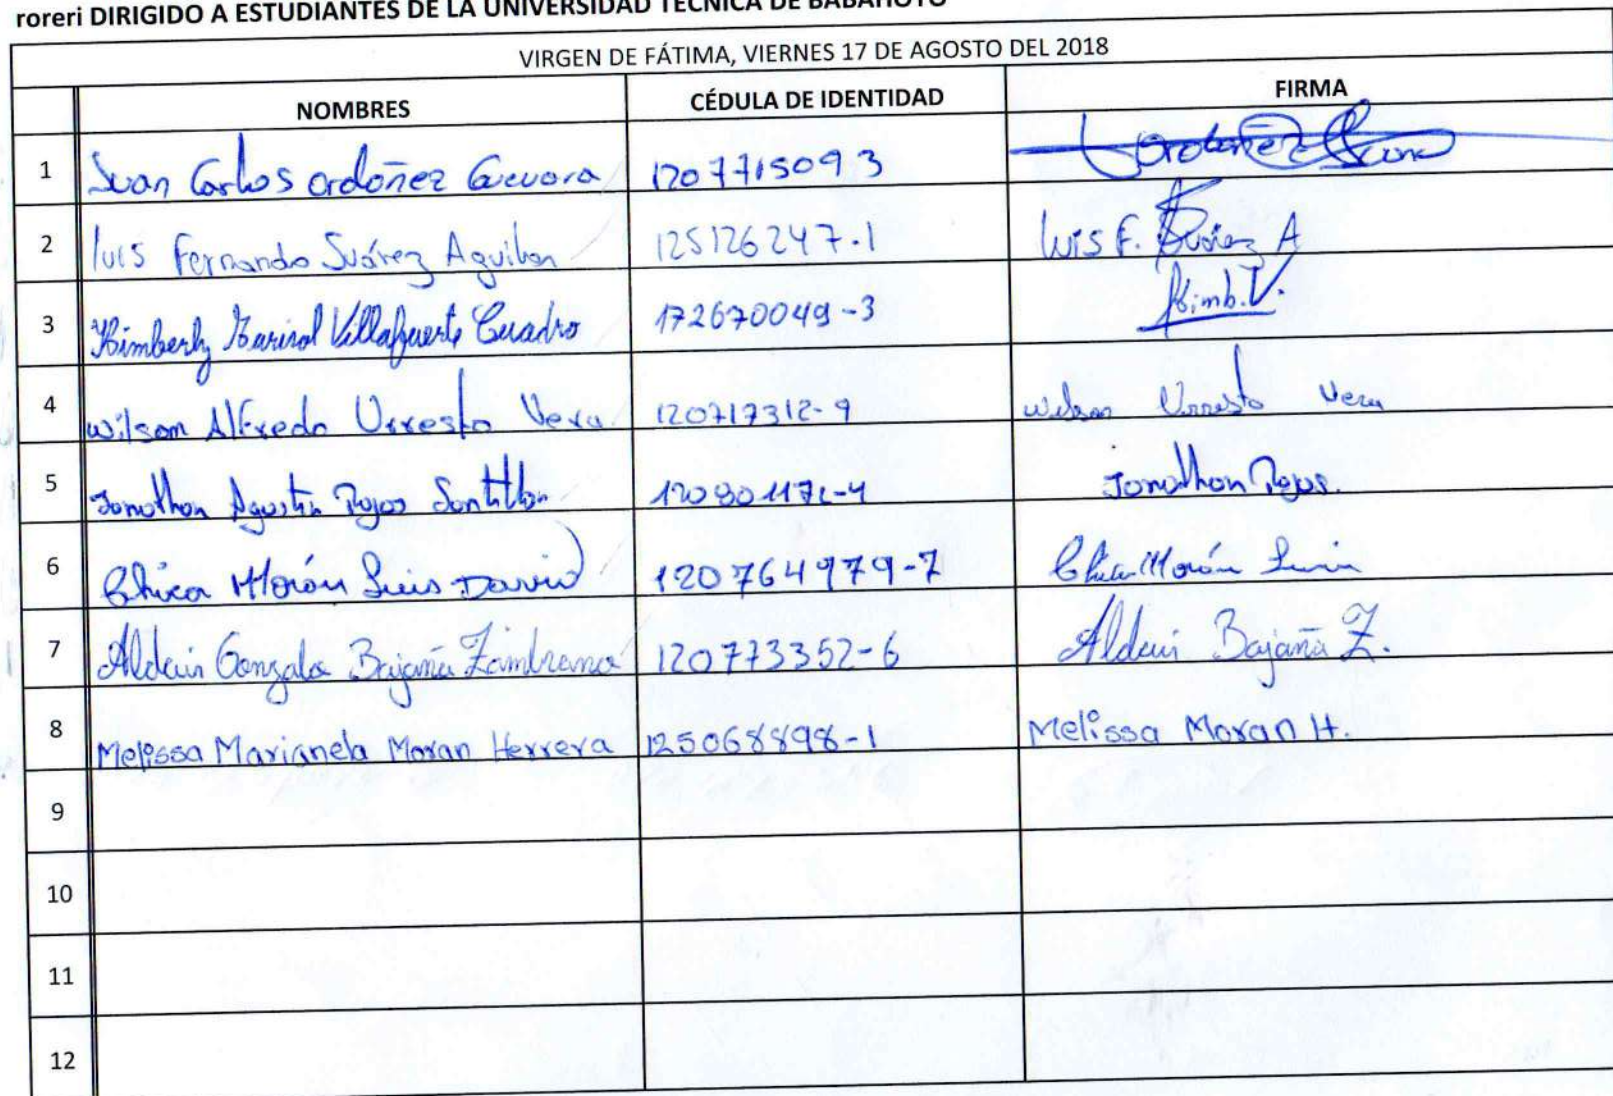 roreri DIRIGIDO A ESTUDIANTES DE LA UNIVERSIDAD TÉCNICA DE BABAHOYO
VIRGEN DE FÁTIMA, VIERNES 17 DE AGOSTO DEL 2018
NOMBRES CÉDULA DE IDENTIDAD FIRMA
1 Juan Carlos Ordóñez Guevara 1207715093 Ordoñez
2 luis Fernando Suárez Aguilar 125126247-1 luis F. Suárez A
3 Kimberly Marisol Villafuerte Cuadro 172670049-3 Kimb. V.
4 Wilson Alfredo Urresto Vera 120717312-9 Wilson Urresto Vera
5 Jonathan Agustin Rojas Santillan Jonathan Rojas.
6 Chica Morán Luis David 120764979-7 Chica Morán Luis
7 Alduin Gonzalo Bajaña Zambrano 120773352-6 Alduin Bajaña Z.
8 Melissa Marianela Moran Herrera 125068898-1 Melissa Moran H.
9
10
11
12